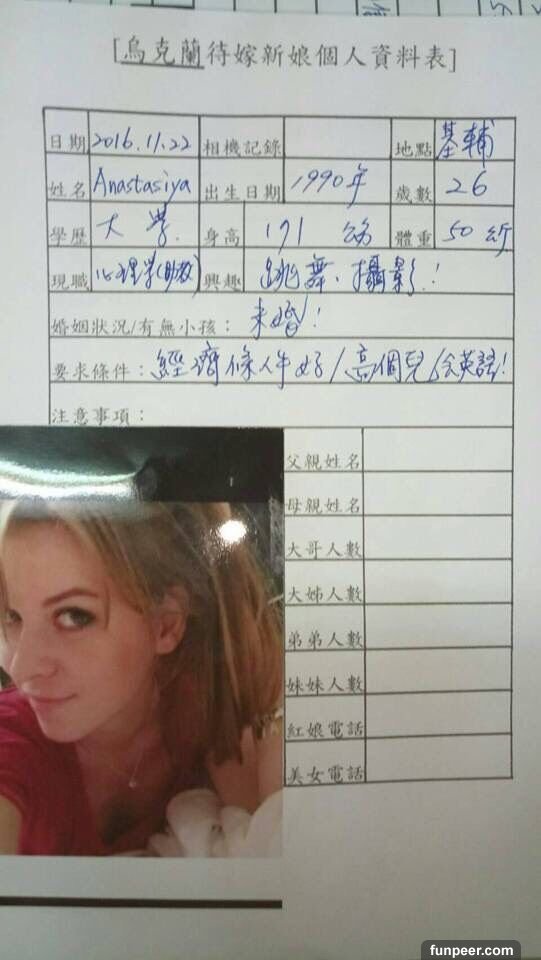 [烏克蘭待嫁新娘個人資料表]
日期 2016.11.22 相機記錄 地點 基輔
姓名 Anastasiya 出生日期 1990年 歲數 26
學歷 大學. 身高 171 公分 體重 50 公斤
現職 心理学(助教) 興趣 跳舞、攝影.!
婚姻狀況/有無小孩： 未婚!
要求條件：經濟條件好/高個兒/会英語!
注意事項：
父親姓名
母親姓名
大哥人數
大姊人數
弟弟人數
妹妹人數
紅娘電話
美女電話
funpeer.com